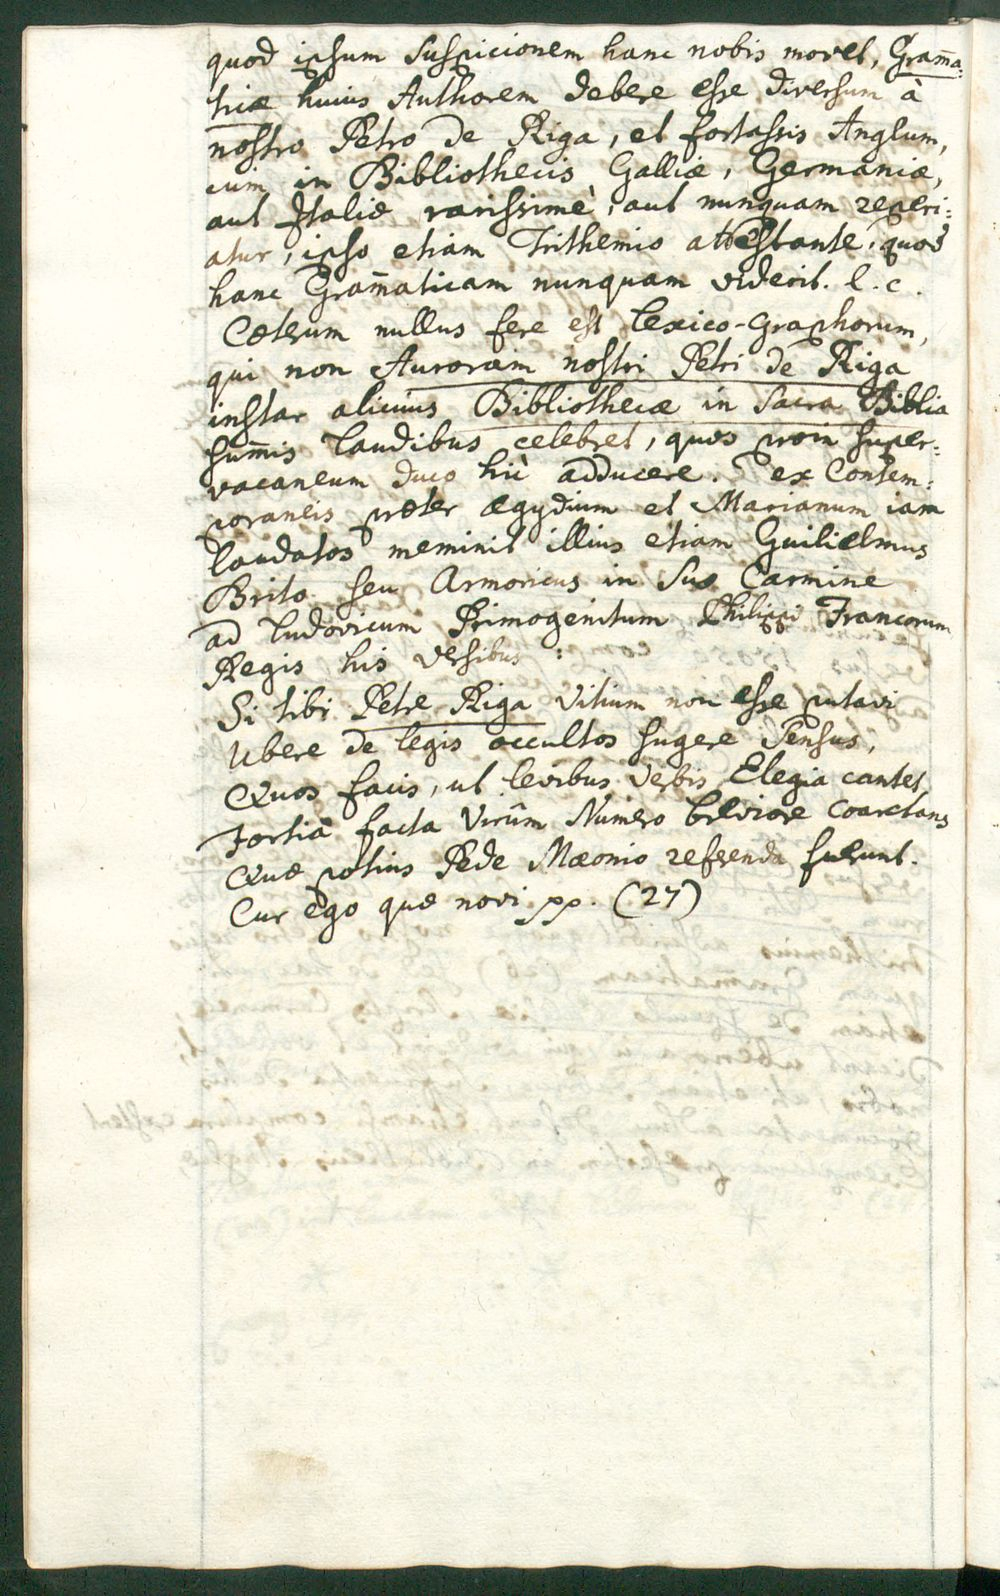 quod ipsum suspicionem hanc nobis movet, Gram̄a:
ticæ huius Authorem debere esse diversum à
nostro Petro de Riga, et fortassis Anglum,
cum in Bibliothecis Galliæ, Germaniæ,
aut Italiæ rarissimè, aut nunquam reperi:
atur, ipso etiam Trithemio attestante, quod
hanc Gram̄aticam nunquam viderit. l. c.
Cæterum nullus fere est Lexico-graphorum,
qui non Auroram nostri Petri de Riga
instar alicuius Bibliothecæ in Sacra Biblia
sum̄is laudibus celebret, quos proin super:
vacaneum duco hìc adducere. ex Contem:
poraneis præter Ægydium et Marianum iam
laudatos meminit illius etiam Guilielmus
Brito seu Armoricus in suo Carmine
ad Ludovicum Primogenitum Philippi Francorum
Regis his versibus:
Si tibi Petre Riga vitium non esse putavi
Ubere de legis occultos sugere sensus,
Quos facis, ut levibus verbis Elegia cantet,
Fortia facta Virûm Numero breviore coarctans
Quæ potius Pede Mæonio referenda fuerunt.
Cur ego quæ novi pp. (27)